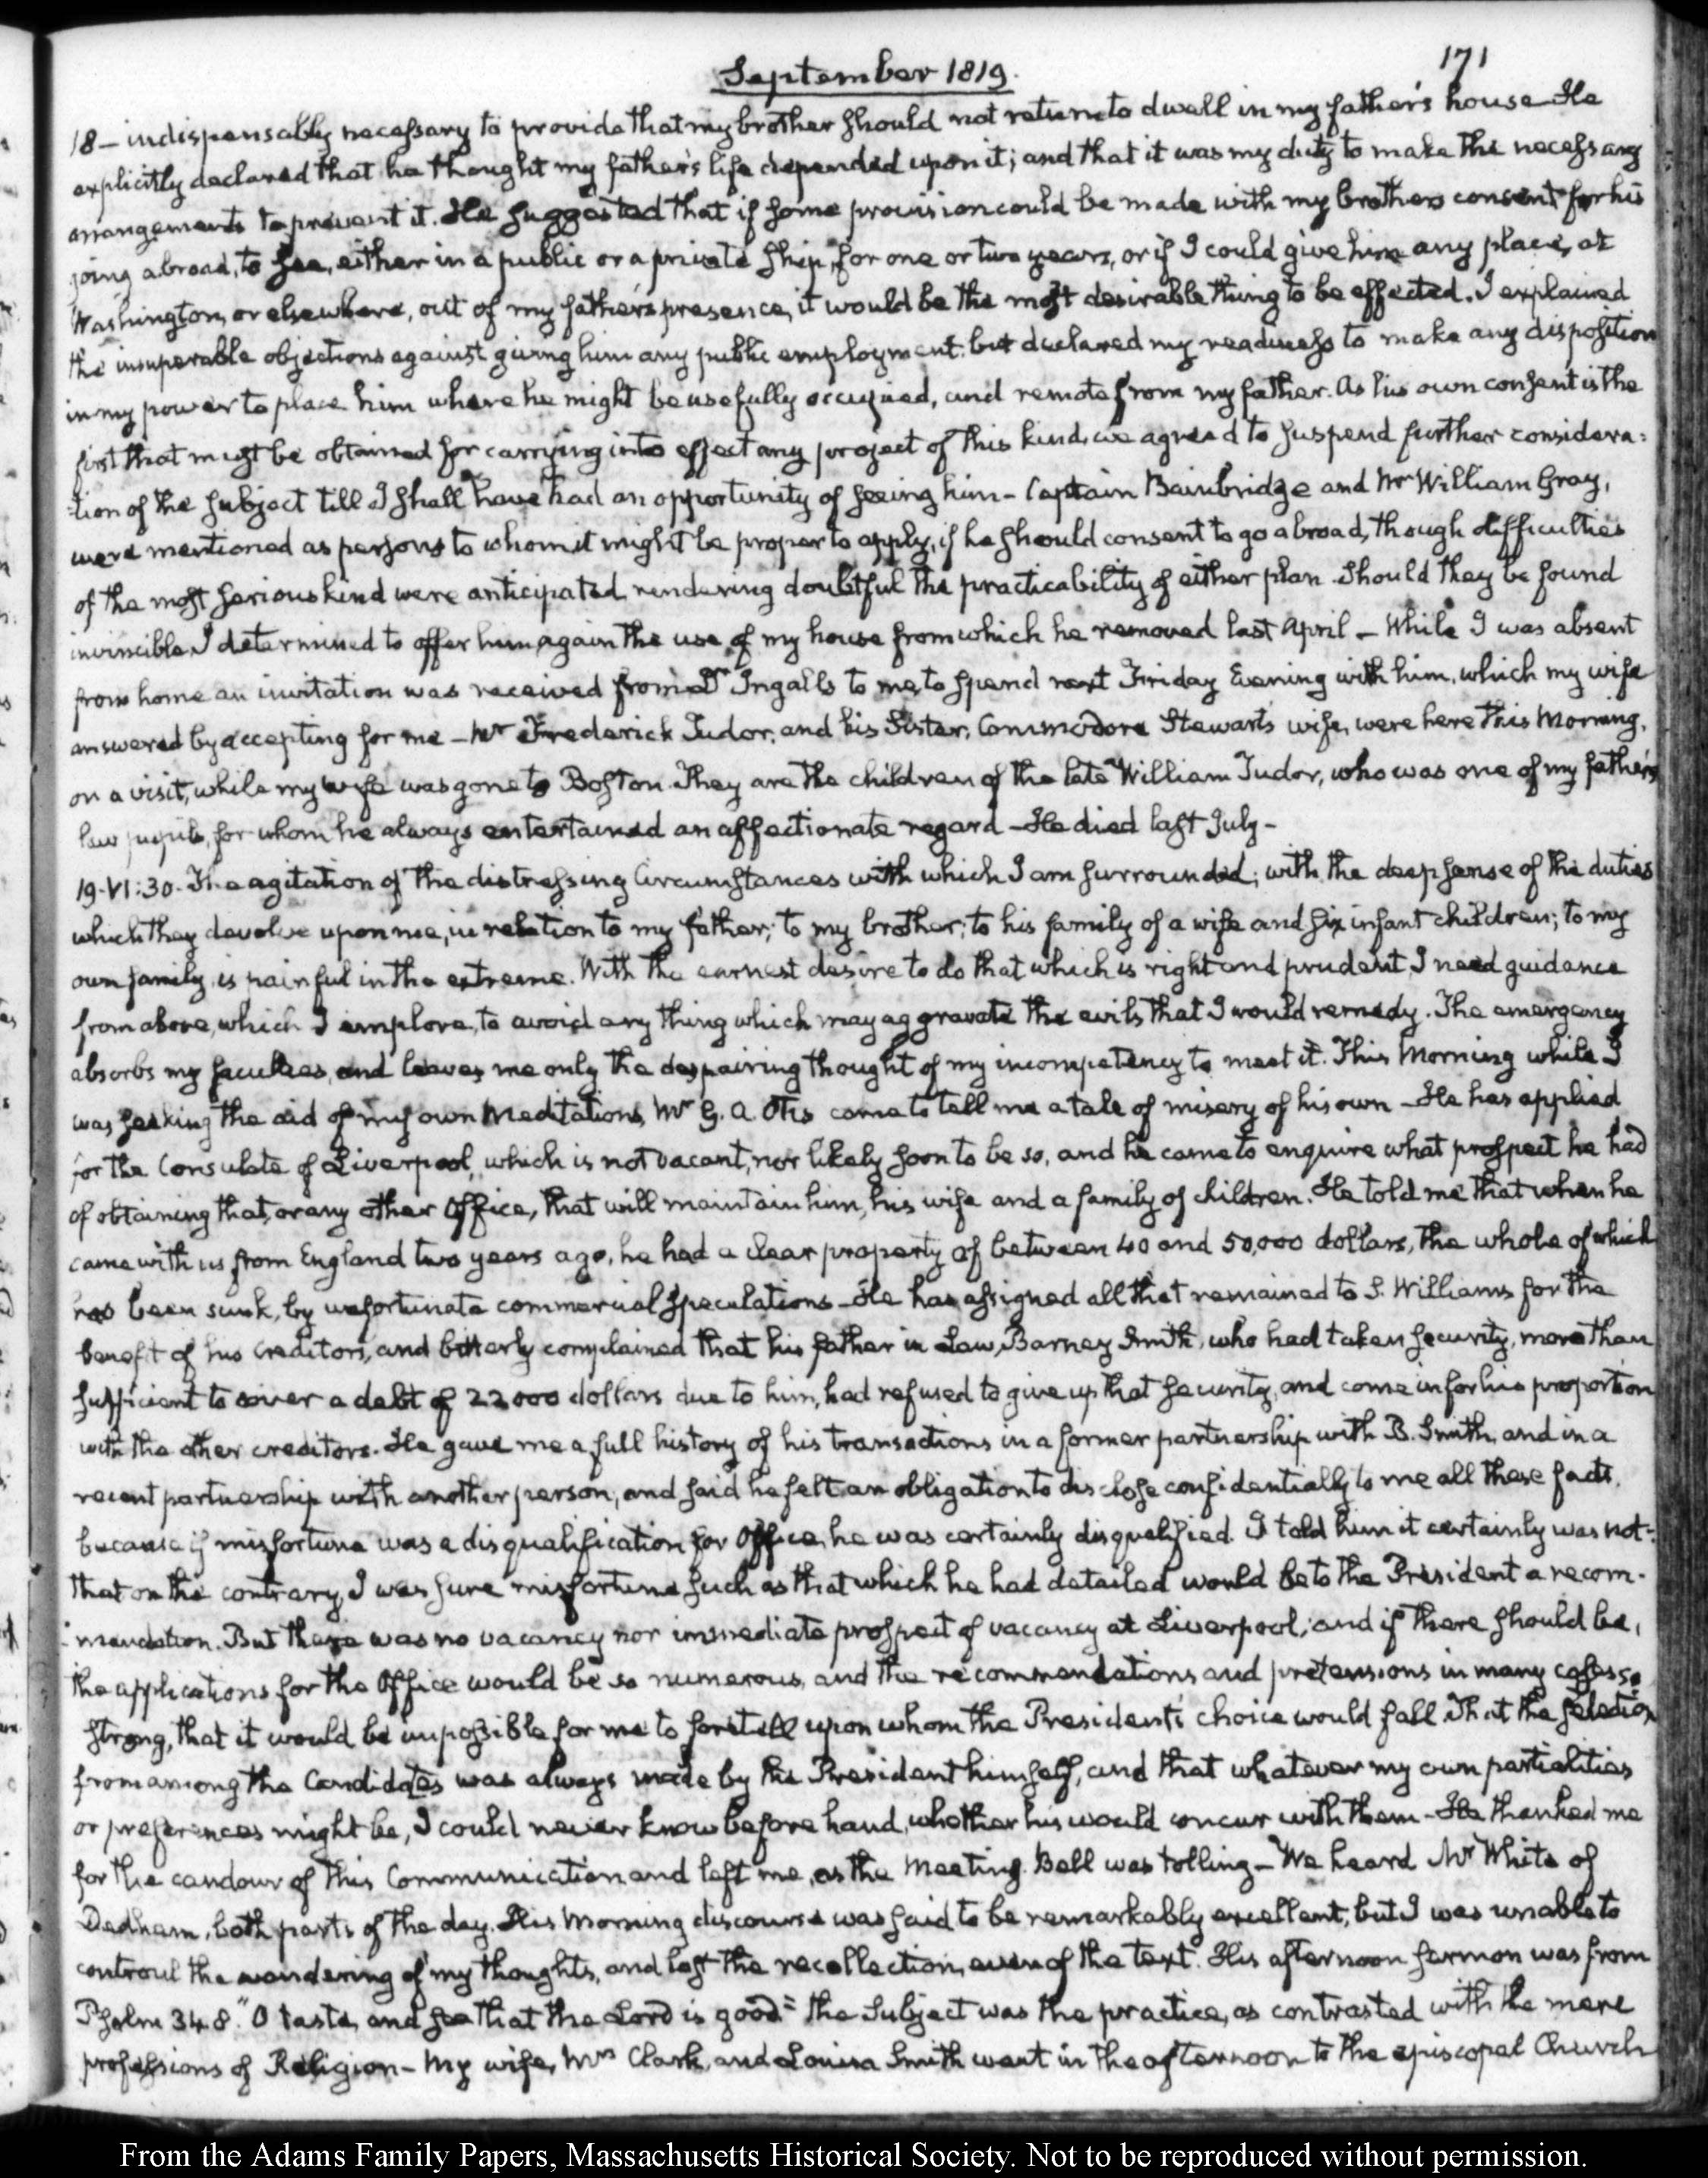 September 1819.
171
18 — indispensably necessary to provide that my brother should not return to dwell in my father's house — He
explicitly declared that he thought my father's life depended upon it; and that it was my duty to make the necessary
arrangements to prevent it. He suggested that if some provision could be made with my brothers consent for his
going abroad, to sea, either in a public or a private ship, for one or two years, or if I could give him any place, at
Washington, or elsewhere, out of my father's presence, it would be the most desirable thing to be effected. I explained
the insuperable objections against giving him any public employment: but declared my readiness to make any disposition
in my power to place him where he might be usefully occupied, and remote from my father. As his own consent is the
first that must be obtained for carrying into effect any project of this kind, we agreed to suspend further considera=
=tion of the subject till I shall have had an opportunity of seeing him — Captain Bainbridge and Mr William Gray,
were mentioned as persons to whom it might be proper to apply, if he should consent to go abroad, though difficulties
of the most serious kind were anticipated, rendering doubtful the practicability of either plan. Should they be found
invincible I determined to offer him again the use of my house from which he removed last April — While I was absent
from home an invitation was received from Dr Ingalls to me, to spend next Friday Evening with him, which my wife
answered by accepting for me — Mr Frederick Tudor, and his Sister, Commodore Stewart's wife, were here this Morning,
on a visit, while my wife was gone to Boston. They are the children of the late William Tudor, who was one of my father's
law pupils, for whom he always entertained an affectionate regard — He died last July —
19. VI:30. The agitation of the distressing Circumstances with which I am surrounded; with the deep sense of the duties
which they devolve upon me, in relation to my father; to my brother; to his family of a wife and six infant children; to my
own family, is painful in the extreme. With the earnest desire to do that which is right and prudent I need guidance
from above, which I implore, to avoid any thing which may aggravate the evils that I would remedy. The emergency
absorbs my faculties, and leaves me only the despairing thought of my incompetency to meet it. This Morning while I
was seeking the aid of my own Meditations, Mr G. A. Otis came to tell me a tale of misery of his own — He has applied
for the Consulate of Liverpool, which is not vacant, nor likely soon to be so, and he came to enquire what prospect he had
of obtaining that, or any other Office, that will maintain him, his wife and a family of children. He told me that when he
came with us from England two years ago, he had a clear property of between 40 and 50,000 dollars, the whole of which
has been sunk, by unfortunate commercial speculations — He has assigned all that remained to S. Williams for the
benefit of his Creditors, and bitterly complained that his father in Law, Barney Smith, who had taken security, more than
sufficient to cover a debt of 22000 dollars due to him, had refused to give up that security, and come in for his proportion
with the other creditors. He gave me a full history of his transactions in a former partnership with B. Smith, and in a
recent partnership with another person, and said he felt an obligation to disclose confidentially to me all these facts,
because if misfortune was a disqualification for Office, he was certainly disqualified. I told him it certainly was not:
that on the contrary, I was sure misfortune such as that which he had detailed would be to the President a recom-
=mendation. But there was no vacancy nor immediate prospect of vacancy at Liverpool; and if there should be,
the applications for the Office would be so numerous, and the recommendations and pretensions in many cases so
strong, that it would be impossible for me to foretell upon whom the President's choice would fall. That the selection
from among the Candidates was always made by the President himself, and that whatever my own partialities
or preferences might be, I could never know before hand, whether his would concur with them — He thanked me
for the candour of this Communication and left me, as the Meeting Bell was tolling — We heard Mr White of
Dedham, both parts of the day. His Morning discourse was said to be remarkably excellent, but I was unable to
controul the wandering of my thoughts, and lost the recollection, even of the text. His afternoon sermon was from
Psalm 34. 8. "O taste, and see that the Lord is good" the Subject was the practice, as contrasted with the mere
professions of Religion — My wife, Mrs Clark, and Louisa Smith went in the afternoon to the episcopal Church
From the Adams Family Papers, Massachusetts Historical Society. Not to be reproduced without permission.